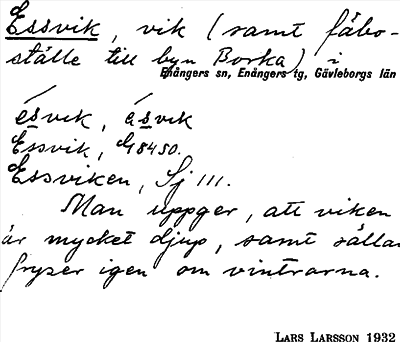 Essvik, vik (samt fäbo-
ställe till byn Borka) i
Enångers sn, Enångers tg, Gävleborgs län
ésvik, ásvik
Essvik, G 8450.
Essviken, Sj 111.
Man uppger, att viken
är mycket djup, samt sällan
fryser igen om vintrarna.
LARS LARSSON 1932